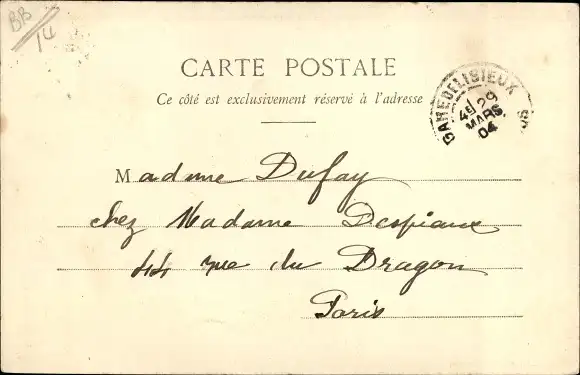 BB
14
CARTE POSTALE
Ce côté est exclusivement réservé à l'adresse
GARE DE LISIEUX
29
MARS
04
Madame Dufay
chez Madame Despiaux
44 rue du Dragon
Paris